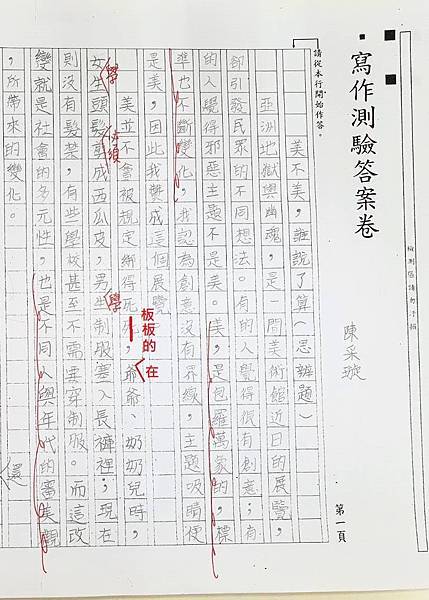 寫作測驗答案卷
檢測區請勿汙損
陳采璇
第一頁
請從本行開始作答。
美不美，誰說了算（思辨題）
亞洲地獄與幽魂，是一間美術館近日的展覽，
卻引發民眾的不同想法。有的人覺得很有創意；有
的人覺得邪惡主題不是美。美，是包羅萬象的，標
準也不斷變化，我認為創意沒有界線，主題吸睛便
是美，因此我贊成這個展覽
美並不會被規定綁得死死，爺爺、奶奶兒時，
板板的
在
女生頭髮剪成西瓜皮，男生制服塞入長褲裡；現在
學
必須
學
則沒有髮禁，有些學校甚至不需要穿制服。而這改
變就是社會的多元性，也是不同人與年代的審美觀
還
，所帶來的變化。